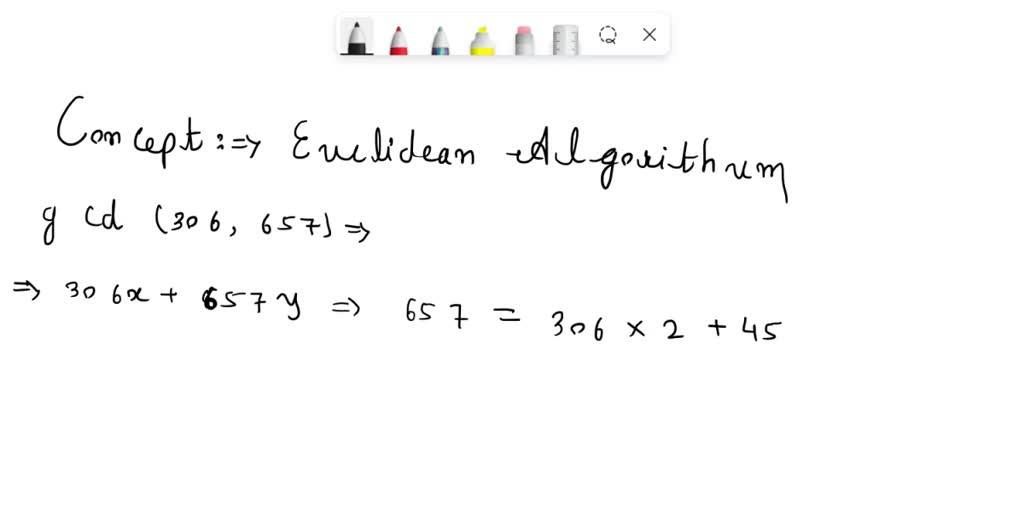 Concept :⇒ Euclidean Algorithum
g cd (306, 657) ⇒
⇒ 306x + 657y ⇒ 657 = 306 × 2 + 45